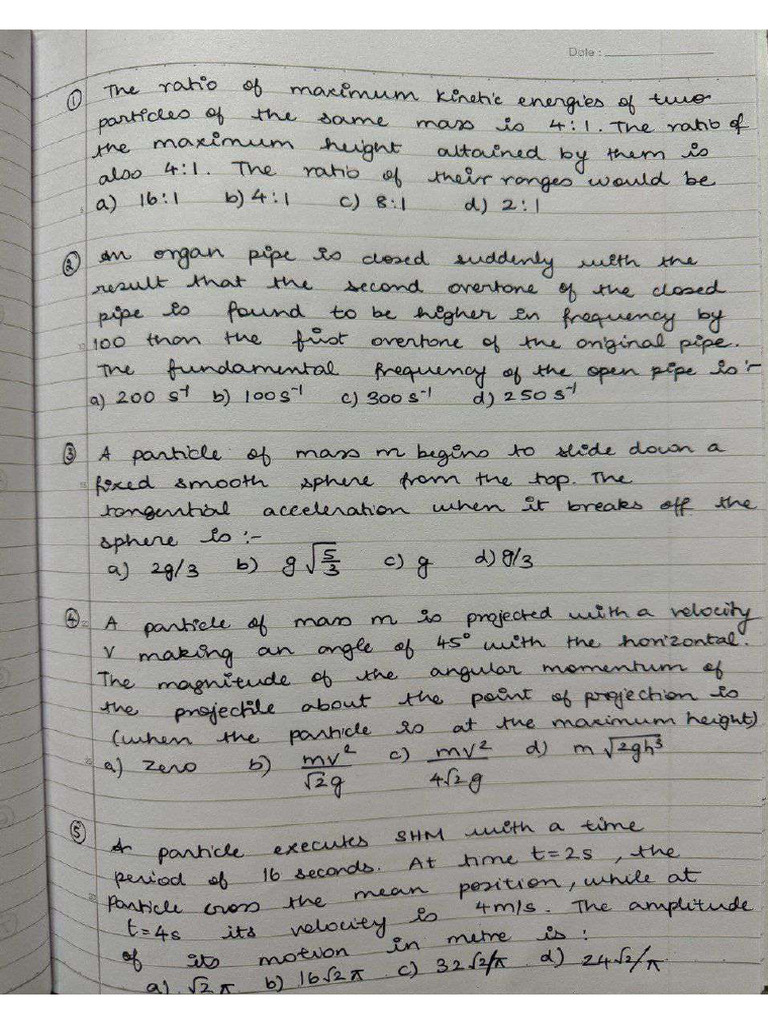 Date :
① The ratio of maximum kinetic energies of two
particles of the same mass is 4:1. The ratio of
the maximum height attained by them is
also 4:1. The ratio of their ranges would be
a) 16:1 b) 4:1 c) 8:1 d) 2:1
② An organ pipe is closed suddenly with the
result that the second overtone of the closed
pipe is found to be higher in frequency by
100 than the first overtone of the original pipe.
The fundamental frequency of the open pipe is :-
a) 200 s⁻¹ b) 100 s⁻¹ c) 300 s⁻¹ d) 250 s⁻¹
③ A particle of mass m begins to slide down a
fixed smooth sphere from the top. The
tangential acceleration when it breaks off the
sphere is :-
a) 2g/3 b) g√(5/3) c) g d) g/3
④ A particle of mass m is projected with a velocity
V making an angle of 45° with the horizontal.
The magnitude of the angular momentum of
the projectile about the point of projection is
(when the particle is at the maximum height)
a) zero b) mv²/√2g c) mv²/4√2g d) m√2gh³
⑤ A particle executes SHM with a time
period of 16 seconds. At time t=2s, the
particle cross the mean position, while at
t=4s its velocity is 4m/s. The amplitude
of its motion in metre is :
a) √2π b) 16√2π c) 32√2/π d) 24√2/π